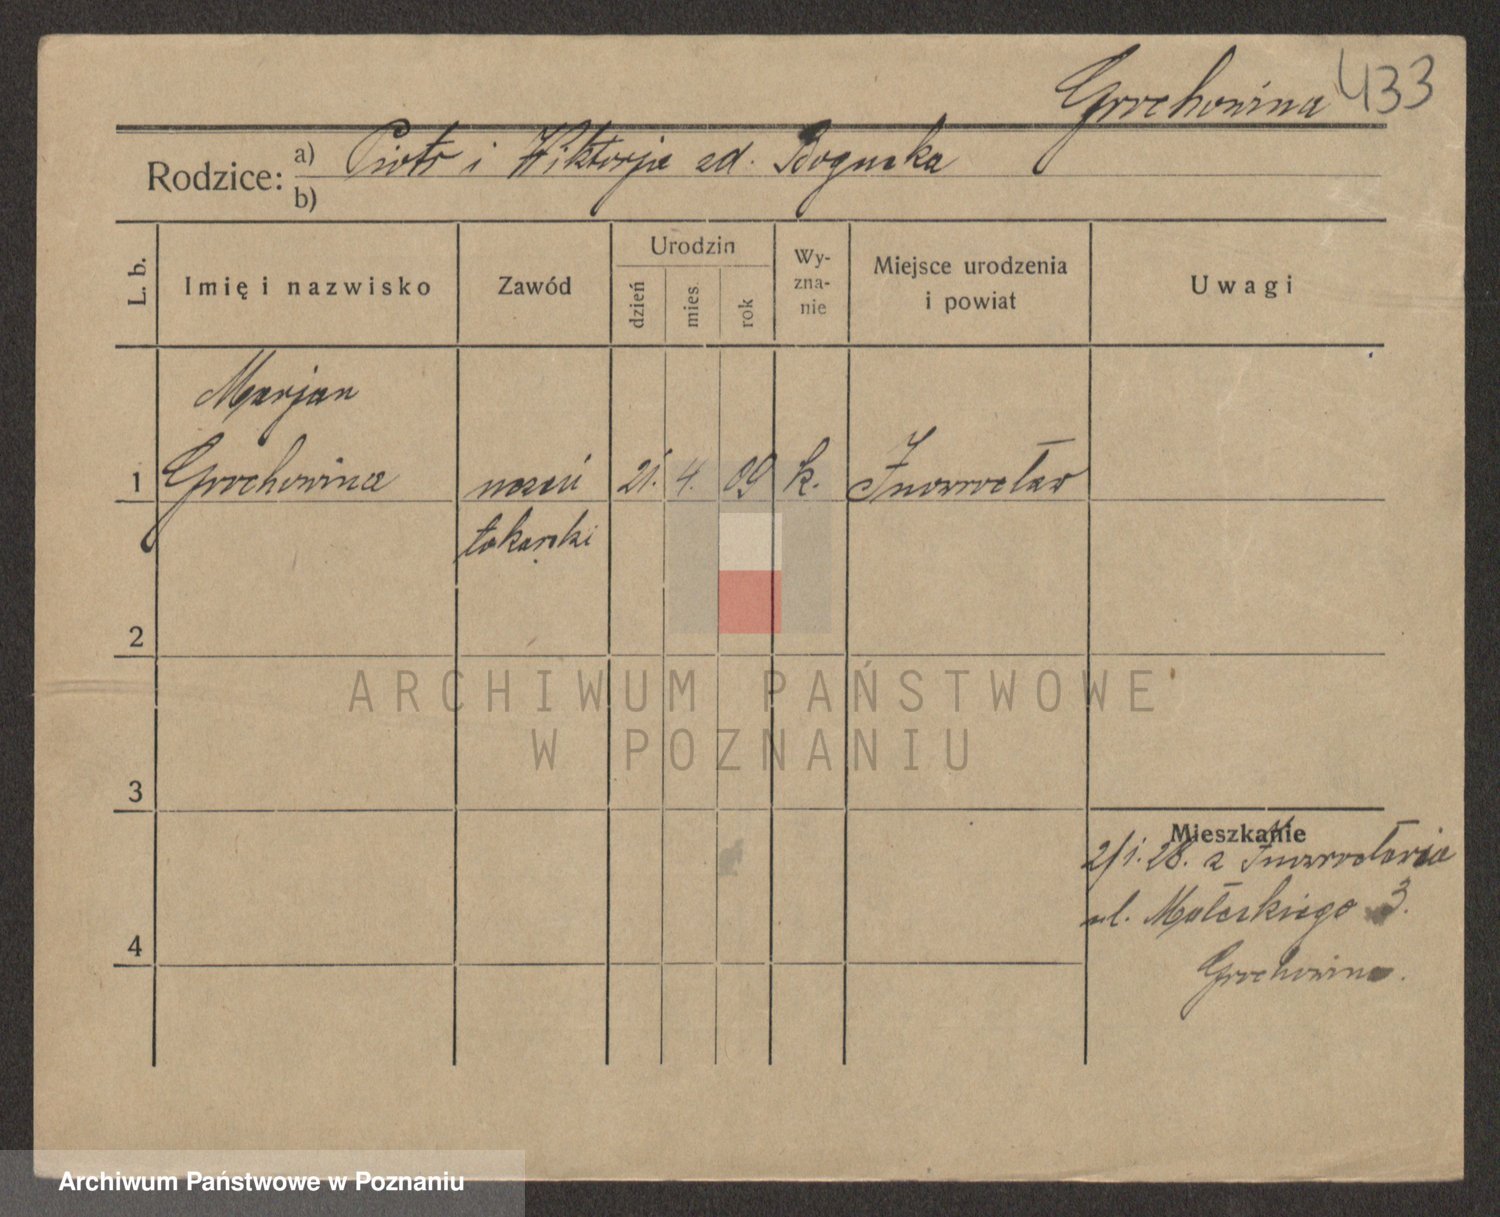 Grochowina 433
Rodzice: a) Piotr i Wiktorja zd. Boguska
b)
L. b. Imię i nazwisko Zawód Urodzin dzień mies. rok Wy-zna-nie Miejsce urodzenia i powiat Uwagi
Marjan
1 Grochowina uczeń 21. 4. 09 k. Inowrocław
tokarski
2
ARCHIWUM PAŃSTWOWE
W POZNANIU
3
Mieszkanie
2/1. 28. z Inowrocławia
4
ul. 3.
Grochowina.
Archiwum Państwowe w Poznaniu